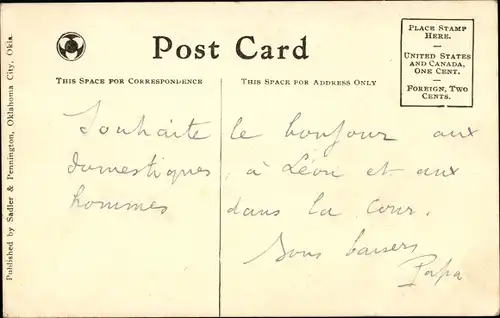 Post Card
THIS SPACE FOR CORRESPONDENCE
THIS SPACE FOR ADDRESS ONLY
PLACE STAMP
HERE.
UNITED STATES
AND CANADA,
ONE CENT.
FOREIGN, TWO
CENTS.
Published by Sadler & Pennington, Oklahoma City, Okla.
Souhaite le bonjour aux
domestiques, à Léon et aux
hommes dans la cour.
Bons baisers
Papa